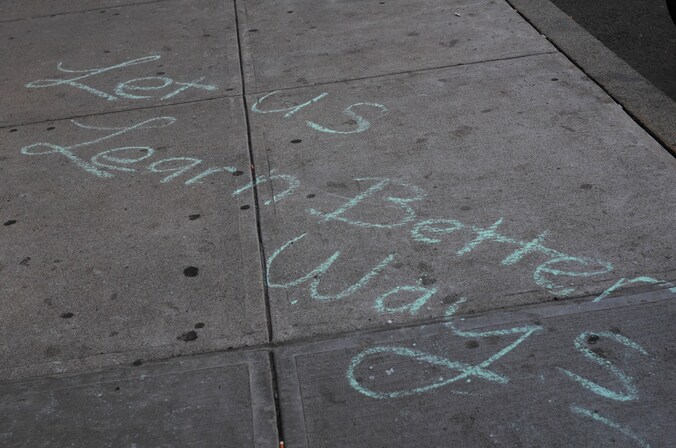 Let us
Learn Better
Ways